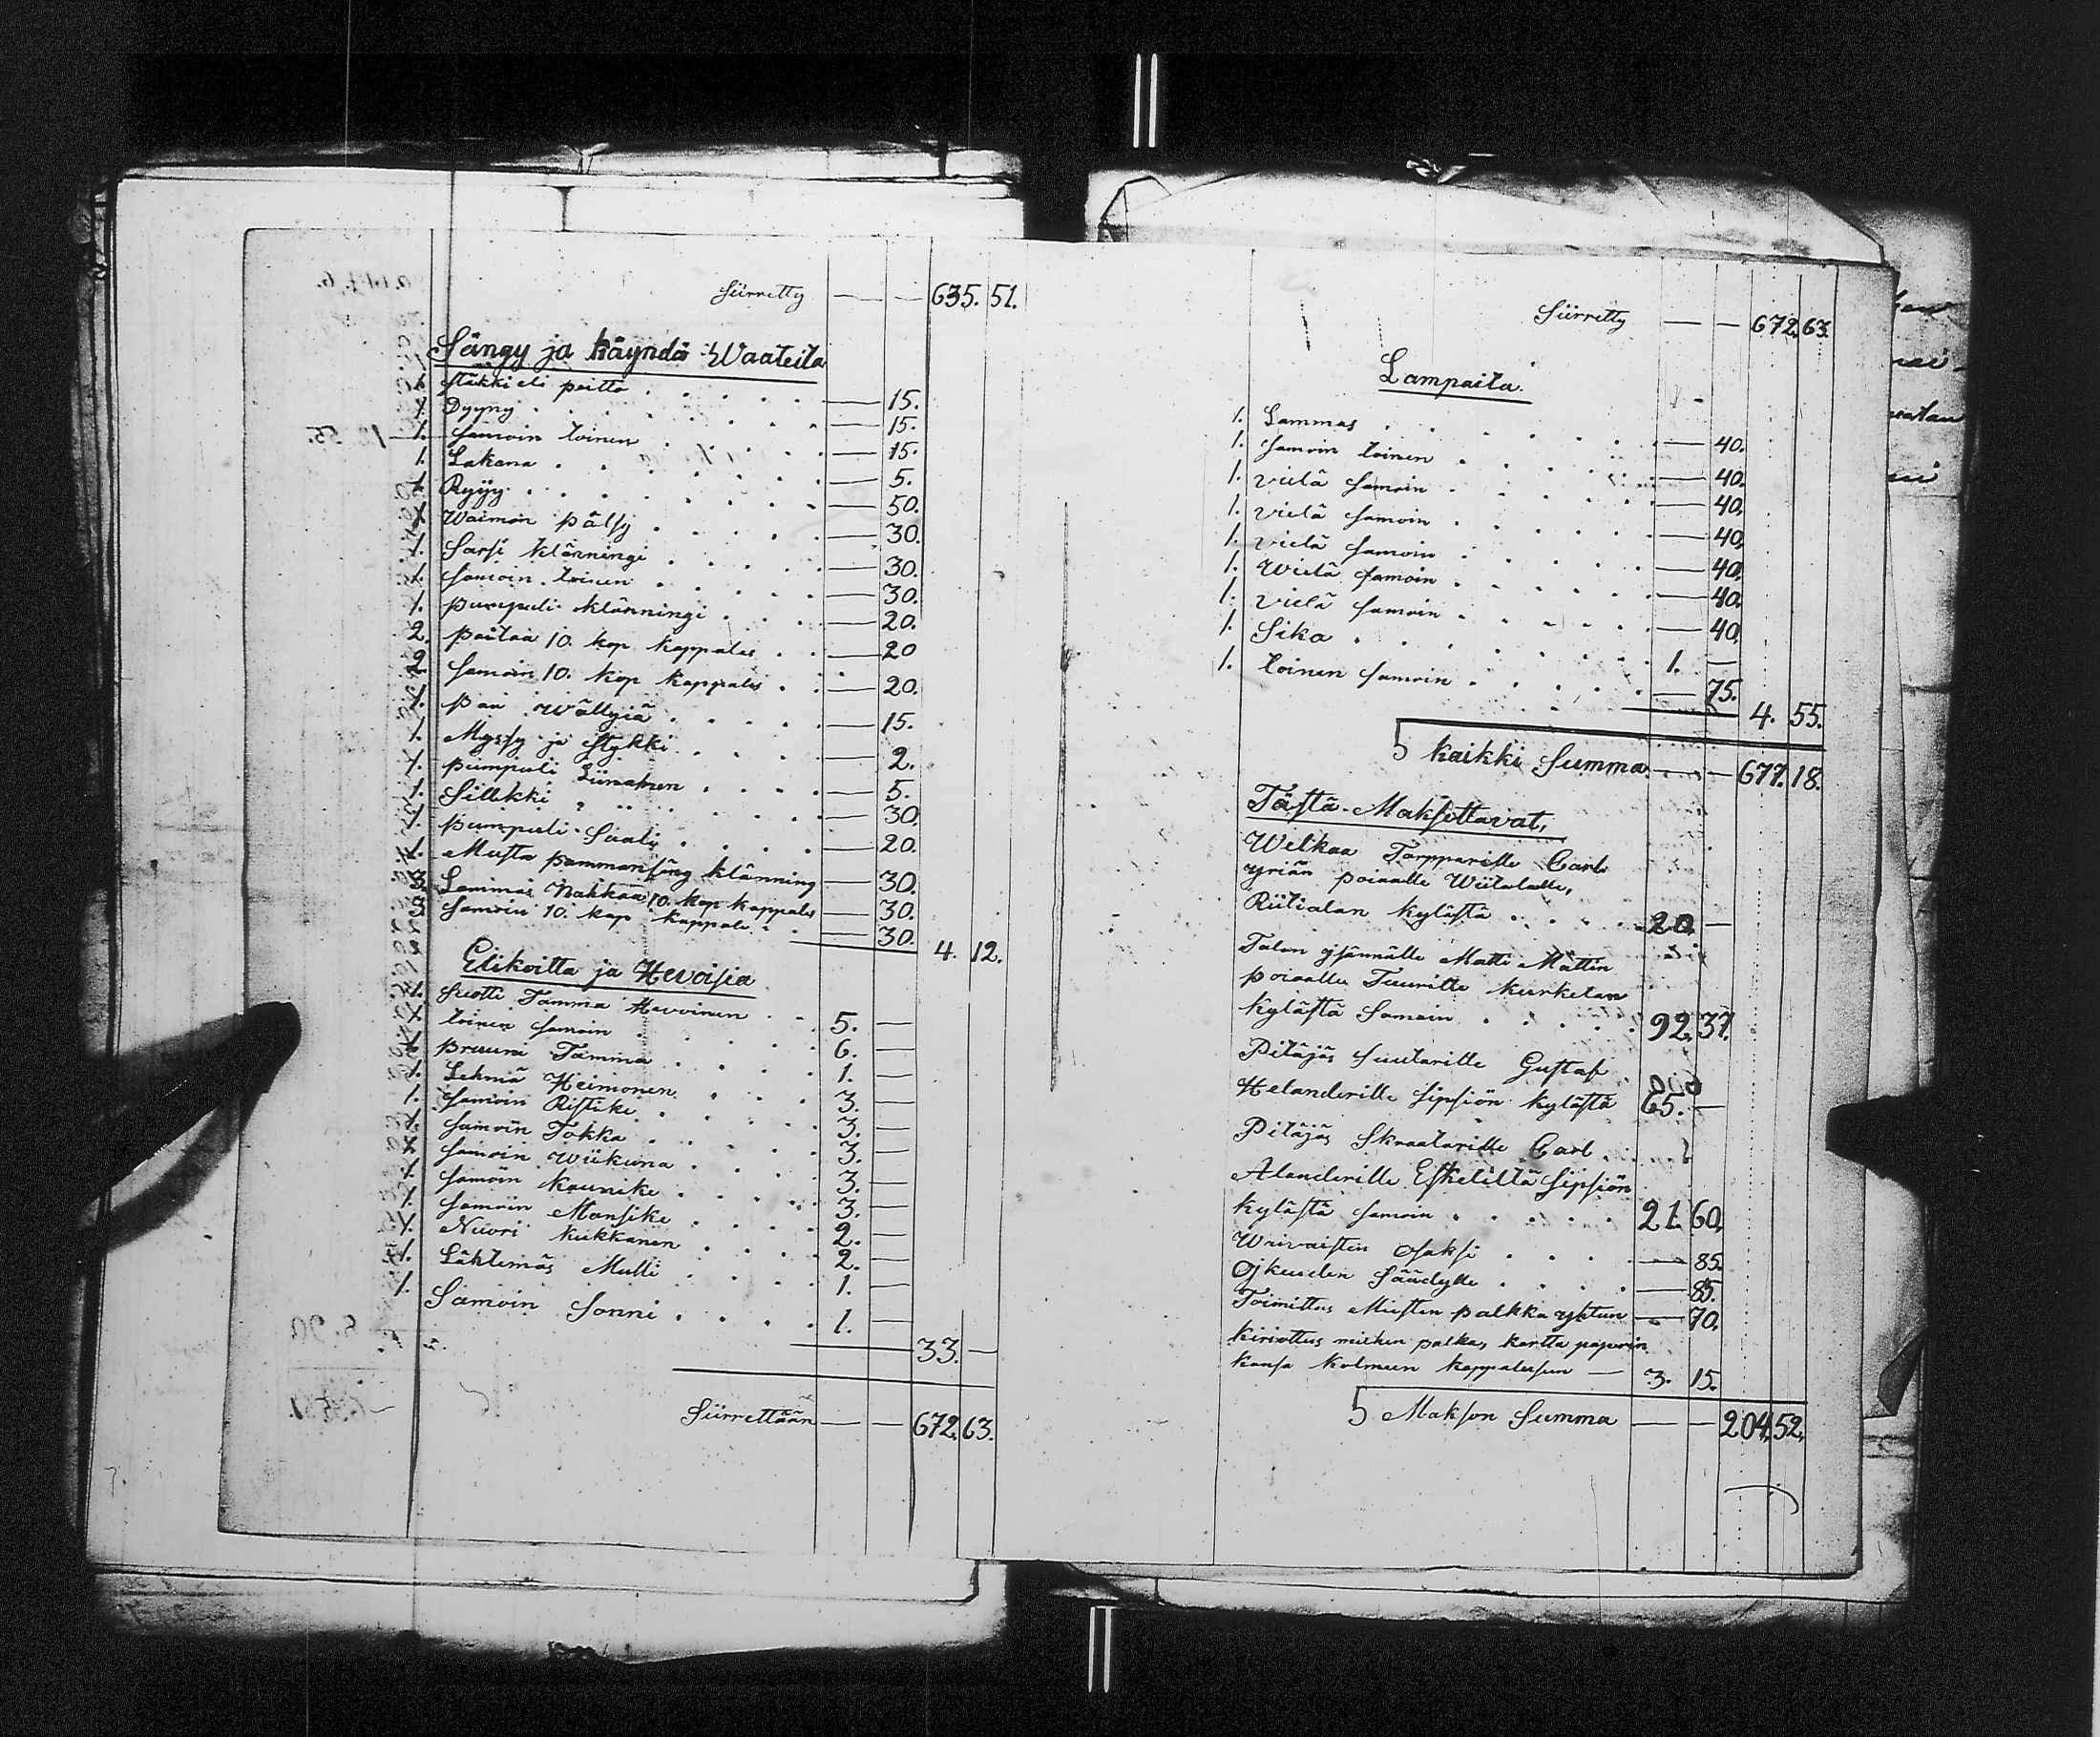 Siirretty — — 635. 51.
Sängy ja käyndä Waateita
1. stäkki eli peitto . . . — 15.
1. Dyyny . . . — 15.
1. samoin toinen . . . — 15.
1. Lakana . . . — 5.
1. Ryijy . . . — 50.
1. Waimon pälsy . . . — 30.
1. Sarsi klänningi . . . — 30.
1. samoin toinen . . . — 30.
1. pumpuli klänningi . . . — 20.
2. paitaa 10. kop kappales . . — 20
2. samoin 10. kop kappales . . — 20.
1. pän wällyiä . . . — 15.
1. Myssy ja stykki . . . — 2.
1. pumpuli Liinainen . . . — 5.
1. Silkki " " . . . — 30.
1. pumpuli Saali . . . — 20.
1. Musta klänning — 30.
3. Lammas Nahkaa 10. kop kappales — 30.
3. samoin 10. kop kappale . . — 30.
4. 12.
Elikoitta ja Hevoisia
1. Suotti Tamma Hevoinen . . 5. —
1. toinen samoin . . . 6. —
1. pruuni Tamma . . . 1. —
1. Lehmä Heimonen . . . 3. —
1. samoin Ristike . . . 3. —
1. samoin Tokka . . . 3. —
1. samoin Wiikuna . . . 3. —
1. samoin kaunike . . . 3. —
1. samoin Mansike . . . 2. —
1. Nuori kukkanen . . . 2. —
1. Lähtemäs Mulli . . . 1. —
1. Samoin Sonni . . . 1. —
33. —
Siirrettään — — 672. 63.
Siirretty — — 672. 63.
Lampaita.
1. Lammas . . . — 40.
1. samoin toinen . . . — 40.
1. vielä samoin . . . — 40.
1. vielä samoin . . . — 40.
1. vielä samoin . . . — 40.
1. Wielä samoin . . . — 40.
1. vielä samoin . . . — 40.
1. Sika . . . 1. —
1. toinen samoin . . . — 75.
4. 55.
kaikki Summa — — 677. 18.
Tästä Maksettavat,
Welkaa Torpparille Carl
yriän poiaalle Wiitalalle,
Riitialan kylästä . . . 20. —
Talon ysännälle Matti Mattin
poiaalle Tuurille kurkelan
kylästä Samoin . . . 92. 37.
Pitäjäs Suutarille Gustaf
Helanderille Sipsiön kylästä 65. —
Pitäjäs Skraatarille Carl
Alanderille Eskelillä Sipsiön
kylästä samoin . . . 21. 60.
Waivaisten osaksi . . . — 85.
Ojkeuden Säädylle . . . — 85.
Toimittus Miesten palkka — 70.
kirioittus miehen palka, kartta paperin
kansa kolmeen kappaleesen — 3. 15.
Makson Summa — — 204. 52.